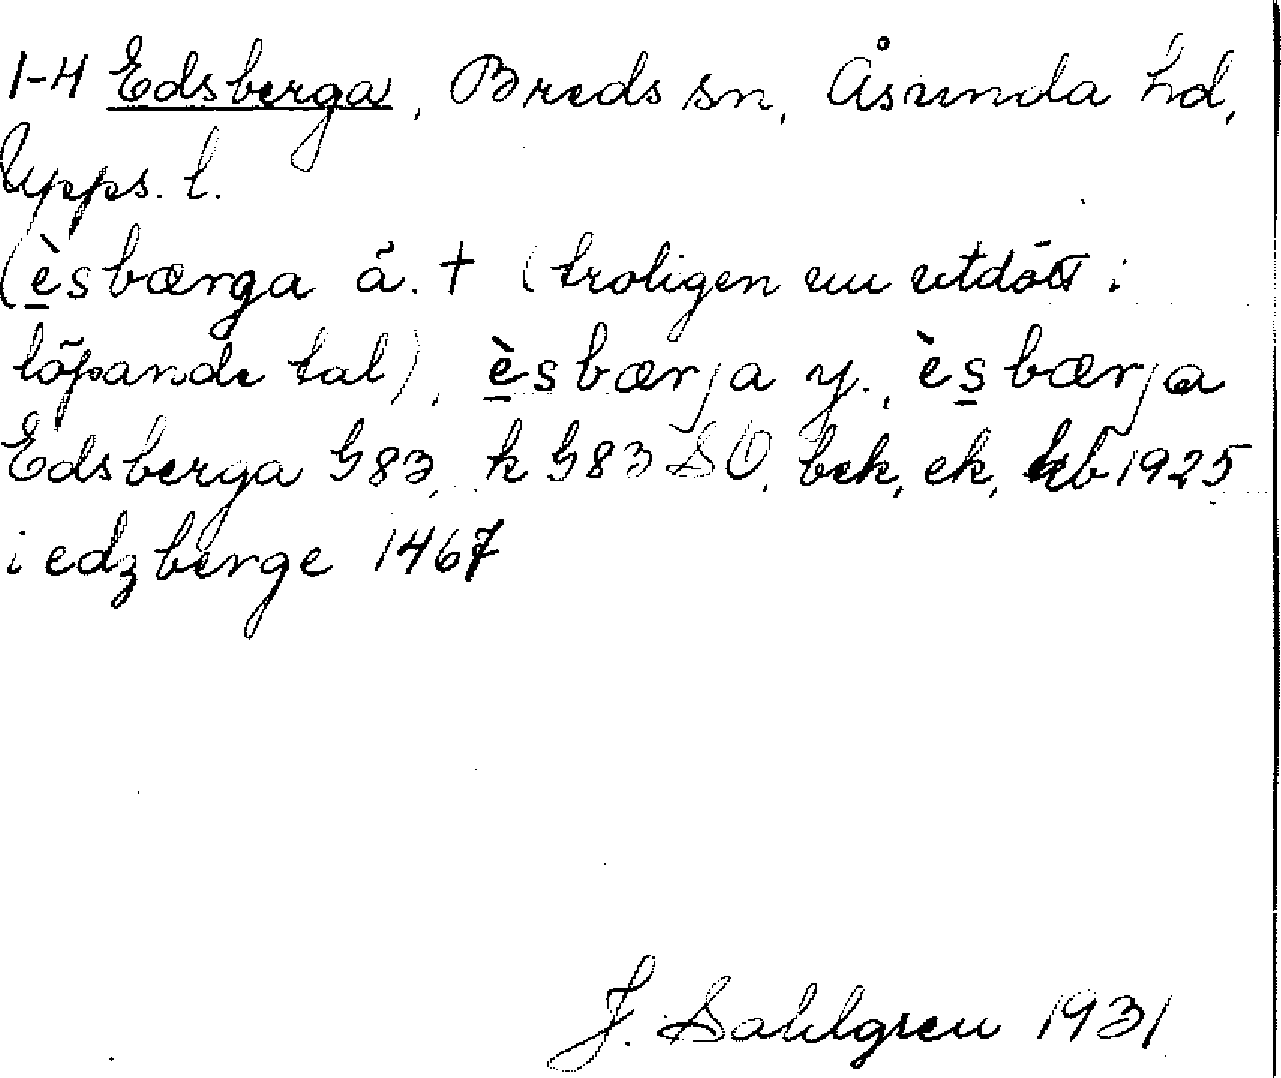 1-4 Edsberga, Breds sn, Åsunda hd,
Upps. l.
(èsbærga ä. † (troligen nu utdött i
löpande tal), èsbærja y., èsbærja
Edsberga G83, k G83 SO, bek, ek, kb 1925
i edzberge 1467
J. Sahlgren 1931